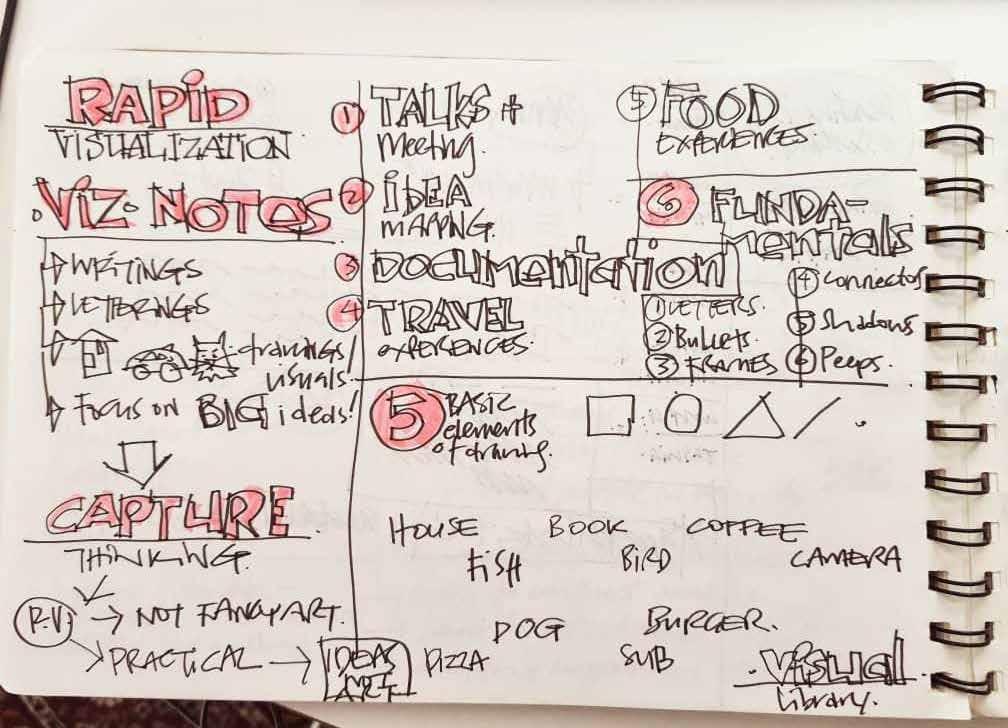 RAPID
VISUALIZATION
.VIZ. NOTES
WRITINGS
LETTERINGS
drawings/
visuals.
FOCUS ON BIG ideas!
CAPTURE
THINKING.
R.V. → NOT FANCY ART.
PRACTICAL → IDEAS
NOT
ART
① TALKS +
Meeting.
② iDEA
MAPPING.
③ DOCUMENTATION
④ TRAVEL
EXPERIENCES.
⑤ FOOD
EXPERIENCES.
⑥ FUNDA-
MENTALS
① LETTERS.
② Bullets.
③ FRAMES
④ Connectors
⑤ Shadows
⑥ Peeps.
5 BASIC
elements
of drawing.
HOUSE BOOK COFFEE
FISH BIRD CAMERA
DOG BURGER.
PIZZA SUB
.VISUAL
Library.